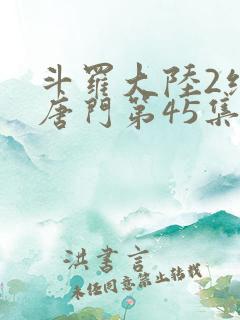 斗羅大陸2
唐門第45集
洪書言
未經同意禁止轉載